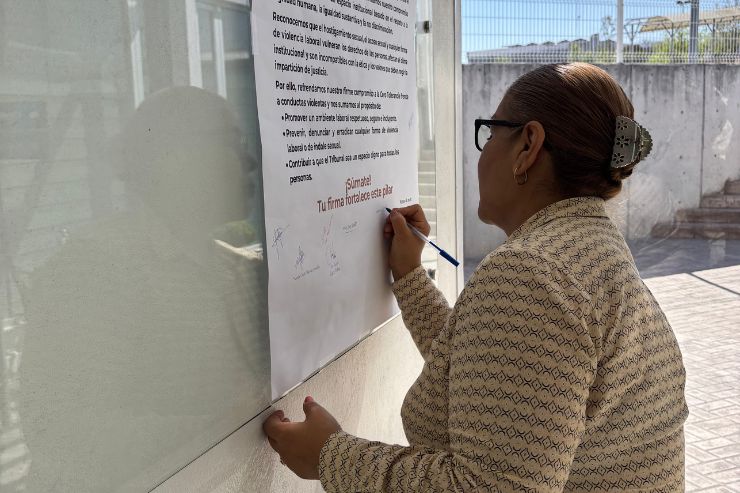 humana, la igualdad sustantiva y la no discriminación.
Reconocemos que el hostigamiento sexual, el acoso sexual y cualquier forma
de violencia laboral vulneran los derechos de las personas, afectan el clima
institucional y son incompatibles con la ética y los valores que deben regir la
impartición de justicia.
Por ello, refrendamos nuestro firme compromiso a la Cero Tolerancia frente
a conductas violentas y nos sumamos al propósito de:
• Promover un ambiente laboral respetuoso, seguro e incluyente.
• Prevenir, denunciar y erradicar cualquier forma de violencia
laboral o de índole sexual.
• Contribuir a que el Tribunal sea un espacio digno para todas las
personas.
¡Súmate!
Tu firma fortalece este pilar